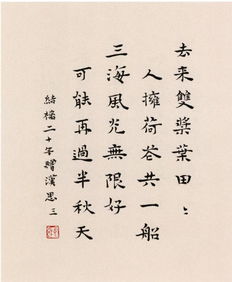 去来雙槳葉田〻
人擁荷荅共一船
三海風光無限好
可能再過半秋天
結褵二十年贈漢思 三